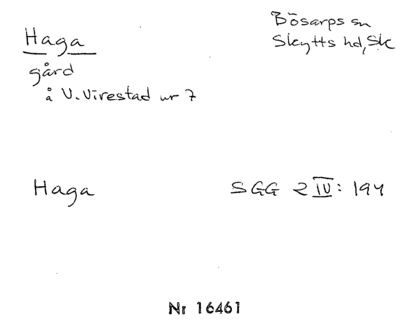 Haga
Bösarps sn
Skytts hd, Sk
gård
å V. Virestad nr 7
Haga
SGG 2 IV: 194
Nr 16461